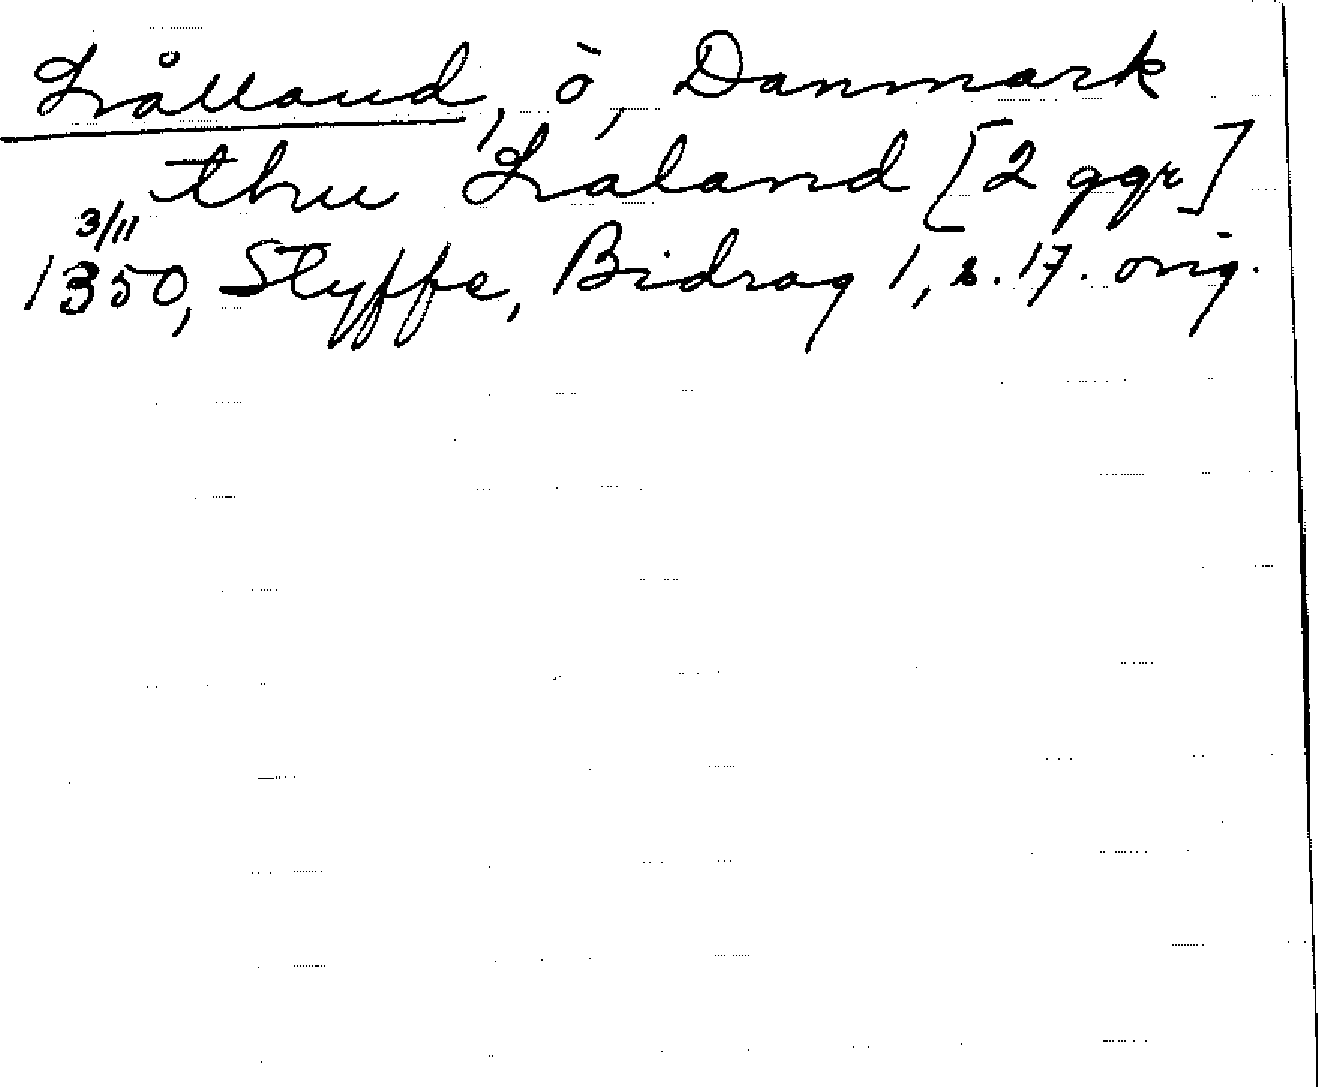 Låland, ö, Danmark
thru Laland [2 ggr]
3/11
1350, Styffe, Bidrag 1, s. 17. orig.